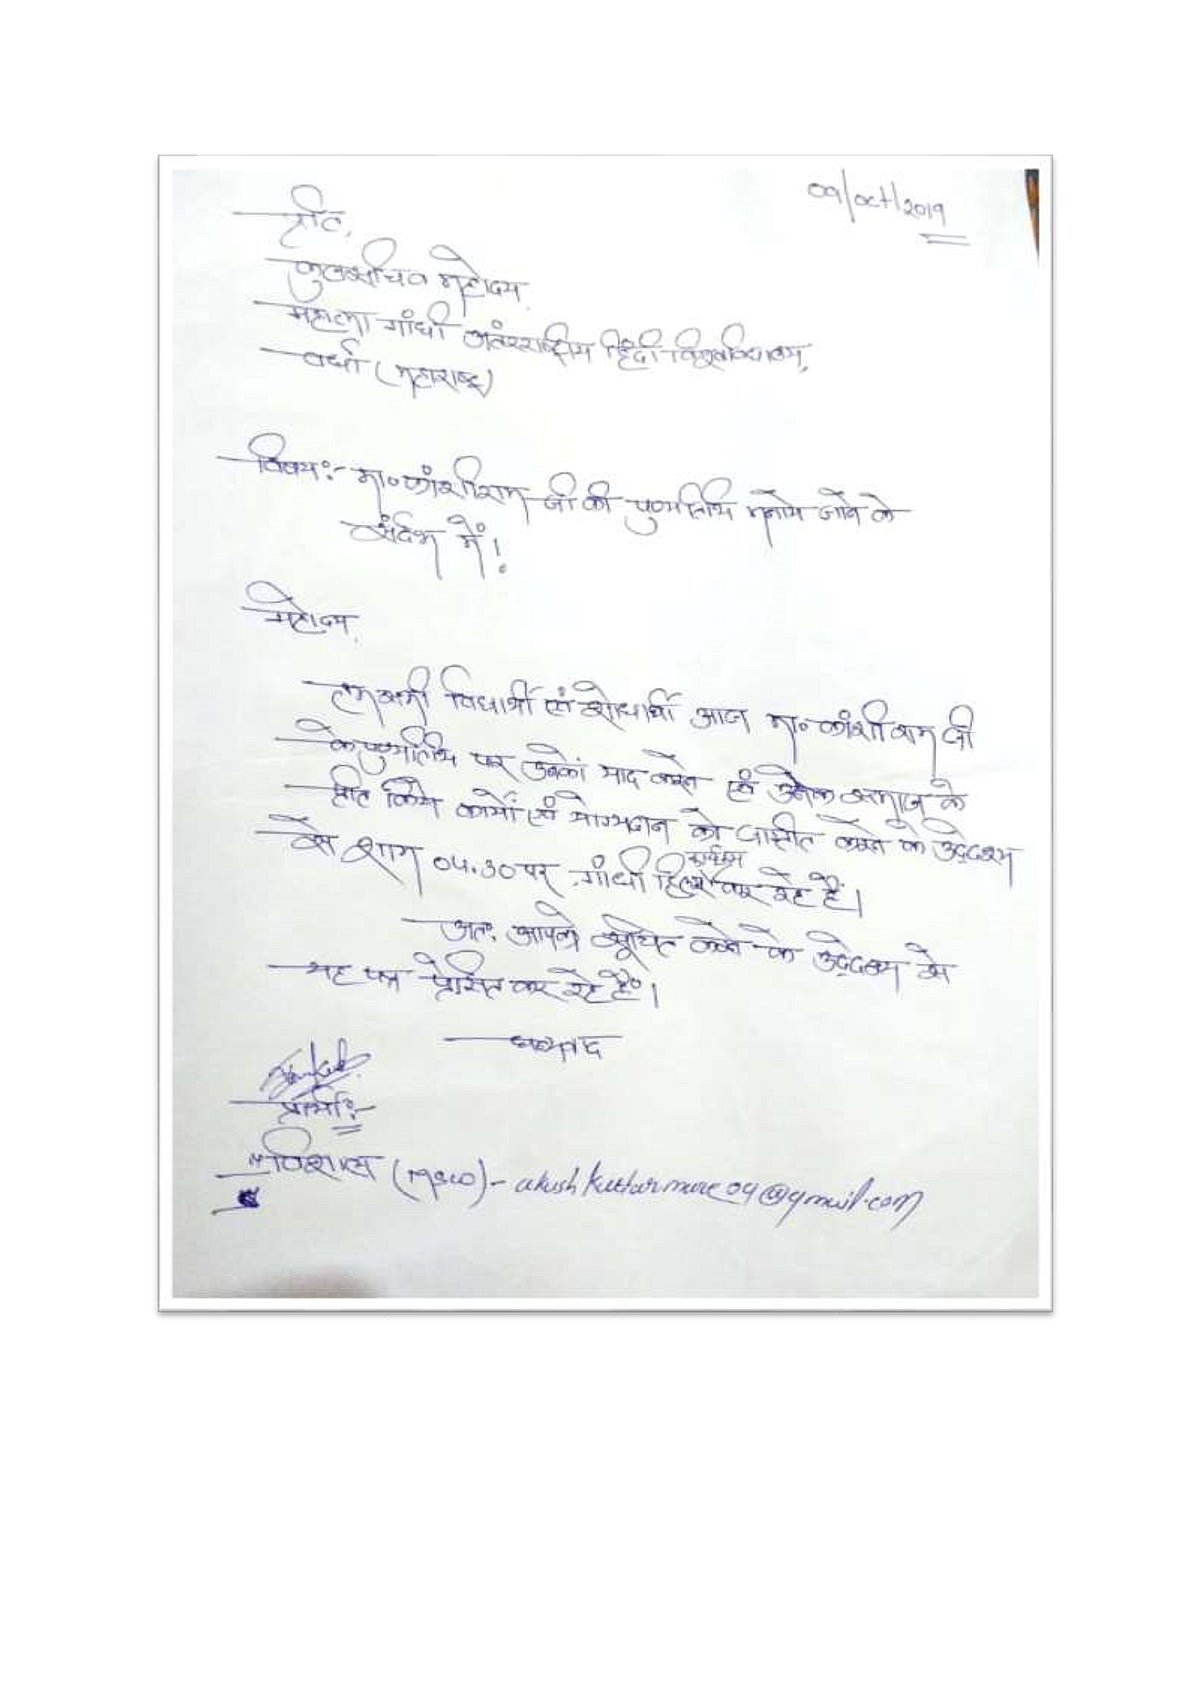 09/oct/2019
प्रति,
कुलसचिव महोदय,
महात्मा गांधी अंतरराष्ट्रीय हिंदी विश्वविद्यालय,
वर्धा (महाराष्ट्र)
विषय:- मा० कांशीराम जी की पुण्यतिथि मनाये जाने के
संर्दभ में!
महोदय,
हम सभी विद्यार्थी एवं शोधार्थी आज मा० कांशीराम जी
के पुण्यतिथि पर उनको याद करने एवं उनके समाज के
प्रति किये कार्यो एवं योगदान को करने के उद्देश्य
से शाम 04.30 पर गांधी हिल्स कार्यक्रम कर रहे हैं।
अतः आपको सूचित करने के उद्देश्य से
यह पत्र प्रेषित कर रहे हैं।
धन्यवाद
प्रार्थी:-
विशाल (MSW) -